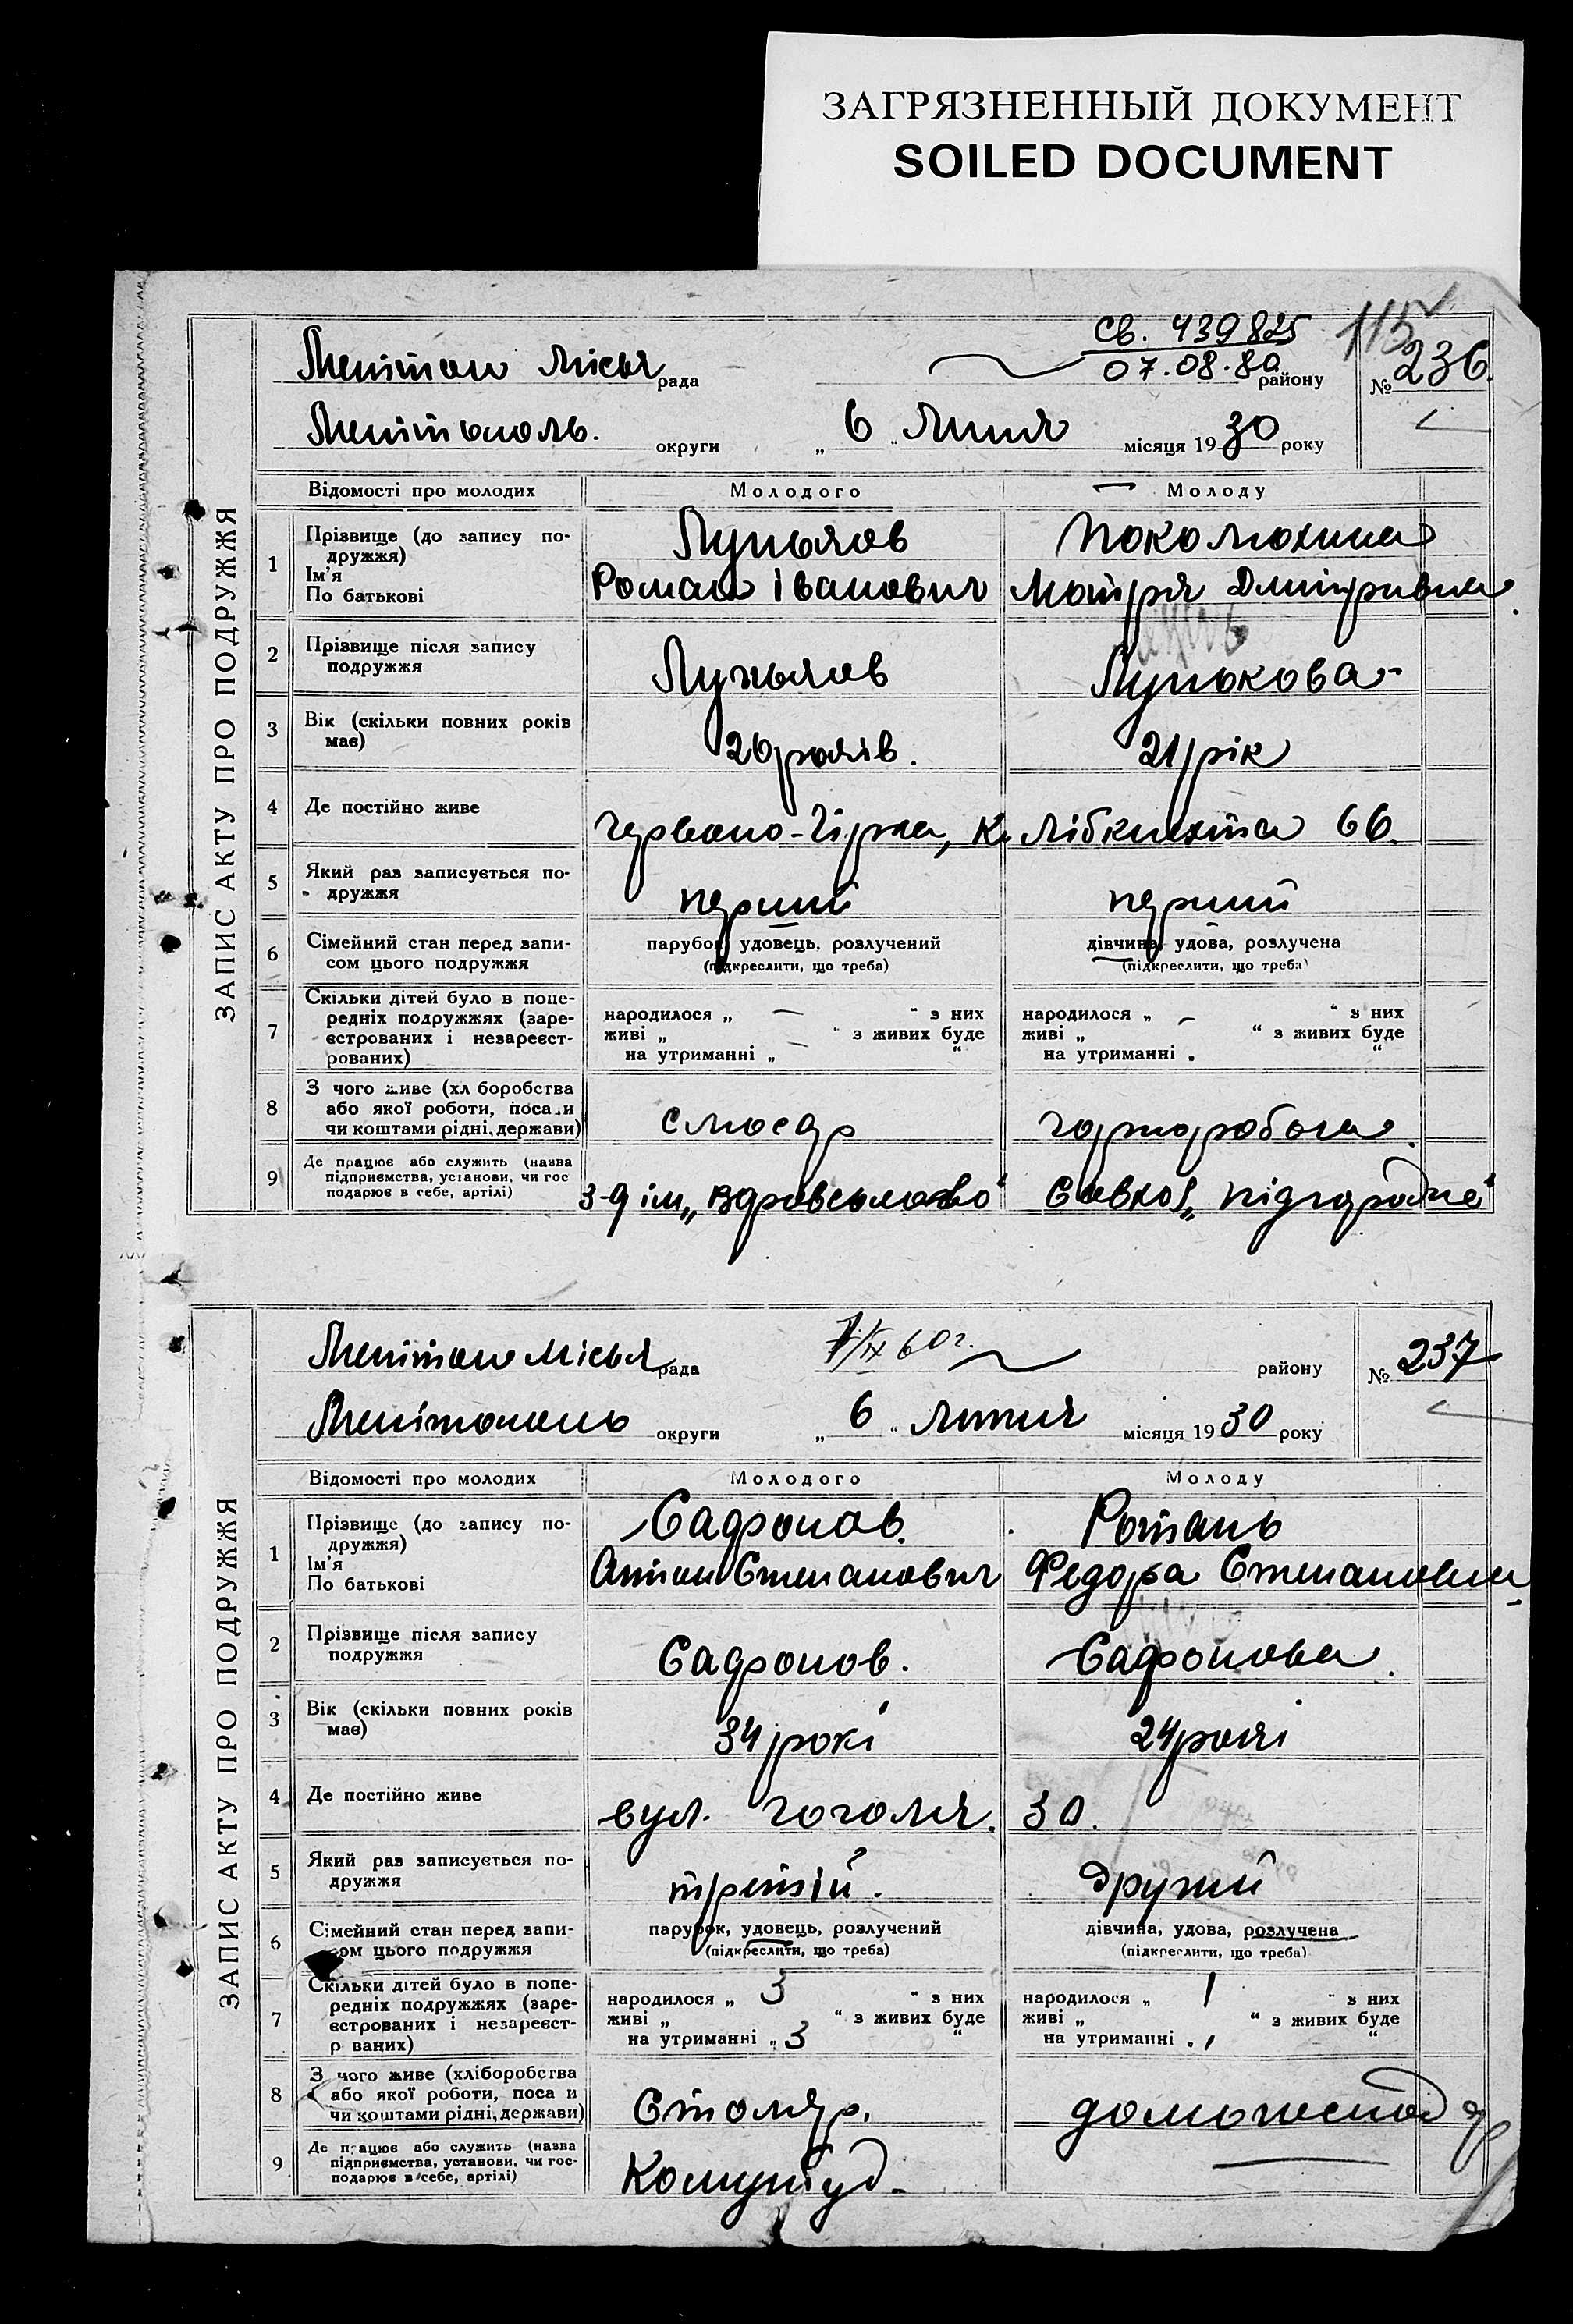 ЗАГРЯЗНЕННЫЙ ДОКУМЕНТ
SOILED DOCUMENT
ЗАПИС АКТУ ПРО ПОДРУЖЖЯ
св. 439825
115
07.08.80
рада району № 236.
округи „ 6 “ липня місяця 1930 року
Відомості про молодих Молодого Молоду
1 Прізвище (до запису по-
дружжя)
Ім'я
По батькові
Роман Іванович Мотря Дмитривна
2 Прізвище після запису
подружжя
Лунькова
3 Вік (скільки повних років
має)
26 років. 21 рік
4 Де постійно живе
Червоно-Гірка, К. Лібкнехта 66.
5 Який раз записується по-
дружжя
перший перший
6 Сімейний стан перед запи-
сом цього подружжя
парубок, удовець, розлучений дівчина, удова, розлучена
(підкреслити, що треба) (підкреслити, що треба)
7 Скільки дітей було в попе-
редніх подружжях (заре-
єстрованих і незареєст-
рованих)
народилося „ — “ з них народилося „ — “ з них
живі „ “ з живих буде живі „ “ з живих буде
на утриманні „ — “ на утриманні „ “
8 З чого живе (хл боробства
або якої роботи, посади
чи коштами рідні, держави)
слюсар чорноробоча
9 Де працює або служить (назва
підприємства, установи, чи гос
подарює в себе, артілі)
З-д ім. Совхоз „Підгородне“
ЗАПИС АКТУ ПРО ПОДРУЖЖЯ
7/IX 60 г.
рада району № 237
округи „ 6 “ липня місяця 1930 року
Відомості про молодих Молодого Молоду
1 Прізвище (до запису по-
дружжя)
Ім'я
По батькові
Сафонов. Ротань
Антон Степанович Федора Степановна
2 Прізвище після запису
подружжя
Сафонов. Сафонова.
3 Вік (скільки повних років
має)
34 рокі 24 рокі
4 Де постійно живе
вул. Гоголя. 30.
5 Який раз записується по-
дружжя
третій. другий
6 Сімейний стан перед запи-
сом цього подружжя
парубок, удовець, розлучений дівчина, удова, розлучена
(підкреслити, що треба) (підкреслити, що треба)
7 Скільки дітей було в попе-
редніх подружжях (заре-
єстрованих і незареєст-
р ваних)
народилося „ 3 “ з них народилося „ 1 “ з них
живі „ “ з живих буде живі „ “ з живих буде
на утриманні „ 3 “ на утриманні „ 1 “
8 З чого живе (хліборобства
або якої роботи, поса и
чи коштами рідні, держави)
Столяр. домогоспод ар
9 Де працює або служить (назва
підприємства, установи, чи гос-
подарює в себе, артілі)
Комунбуд. —